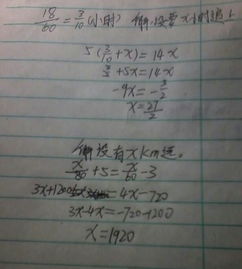 18/60 = 3/10 (小时) 解设要x小时追上
5(3/10+x)=14x
3/2+5x=14x
-9x=-3/2
x=27/2
解设有xkm远。
x/80+5=x/60-3
3x+1200=4x-720
3x-4x=-720-1200
x=1920